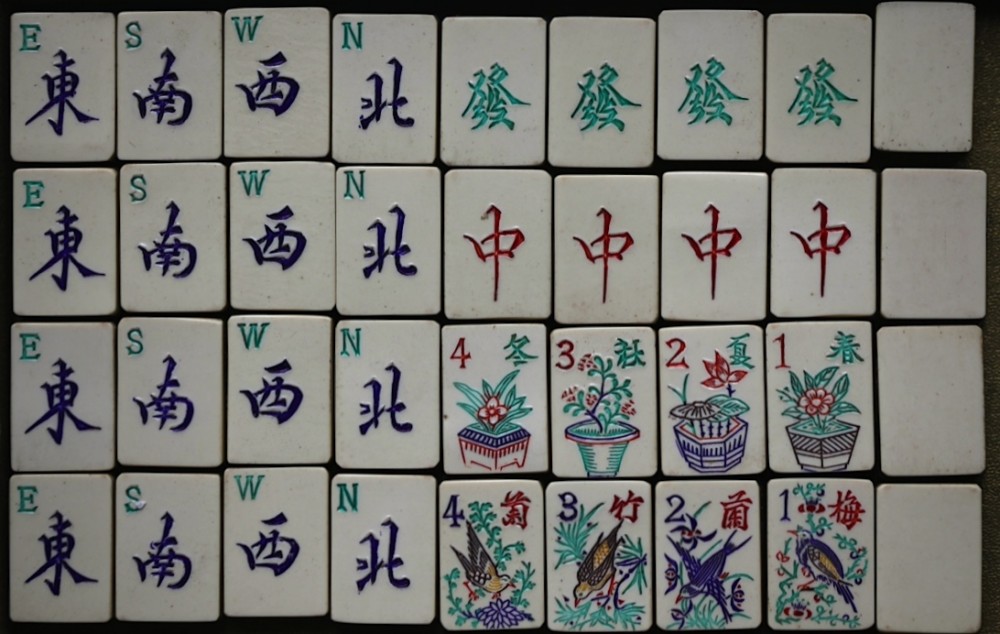 E 東 S 南 W 西 N 北 發 發 發 發
E 東 S 南 W 西 N 北 中 中 中 中
E 東 S 南 W 西 N 北 4 冬 3 秋 2 夏 1 春
E 東 S 南 W 西 N 北 4 菊 3 竹 2 1 梅